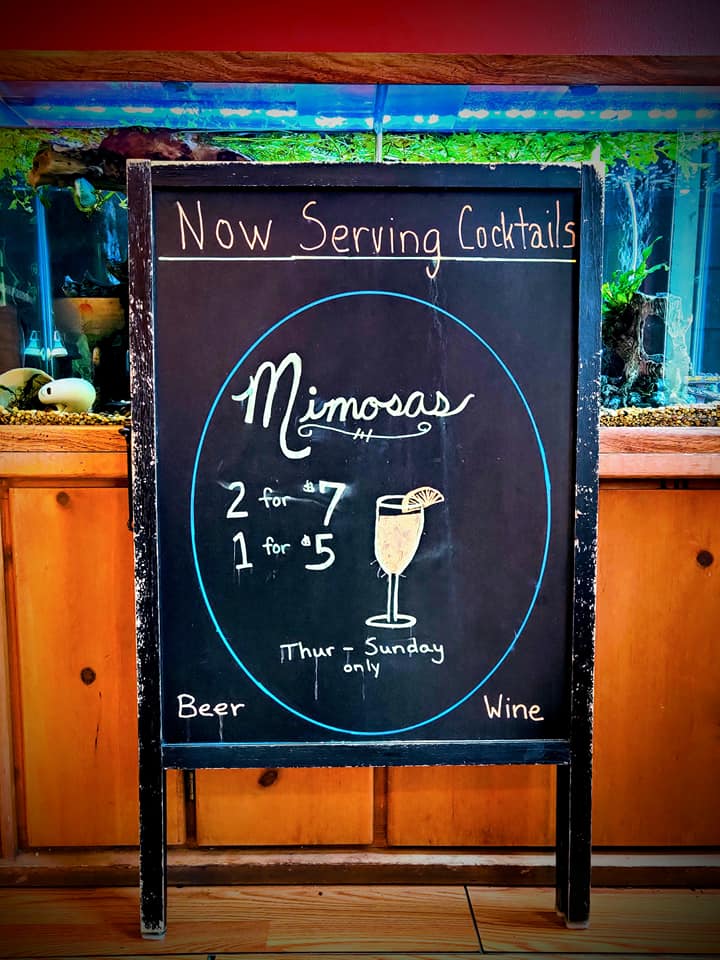 Now Serving Cocktails
Mimosas
2 for $7
1 for $5
Thur - Sunday
only
Beer
Wine